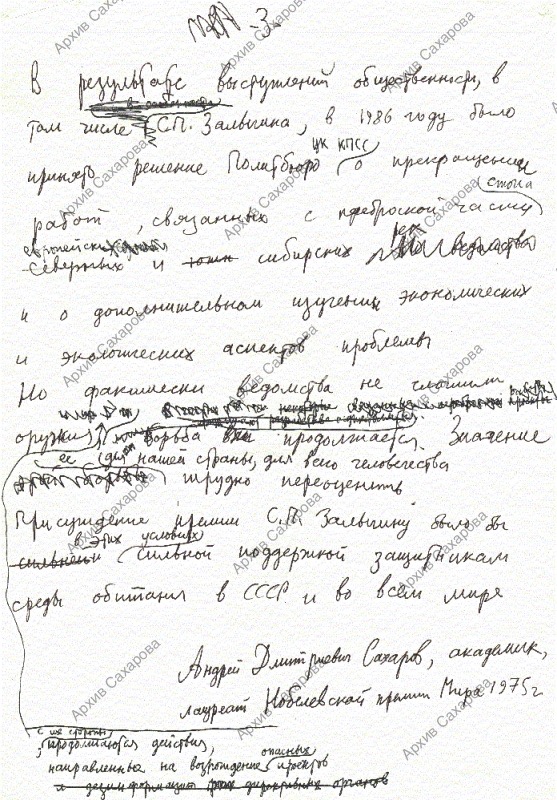 -3-
В результате выступлений общественности, в
том числе С.П. Залыгина, в 1986 году было
ЦК КПСС
принято решение Политбюро о прекращении
работ, связанных с переброской части
стока
европейских
северных и сибирских рек
и о дополнительном изучении экономических
и экологических аспектов проблемы
Но фактически ведомства не сложили
оружия, борьба продолжается. Значение
ее для нашей страны, для всего человечества
трудно переоценить
Присуждение премии С.П. Залыгину было бы
в этих условиях
сильной поддержкой защитникам
среды обитания в СССР и во всем мире
Андрей Дмитриевич Сахаров, академик,
лауреат Нобелевской премии Мира 1975г.
с их стороны
, продолжаются действия,
опасных
направленные на возрождение проектов
Архив Сахарова